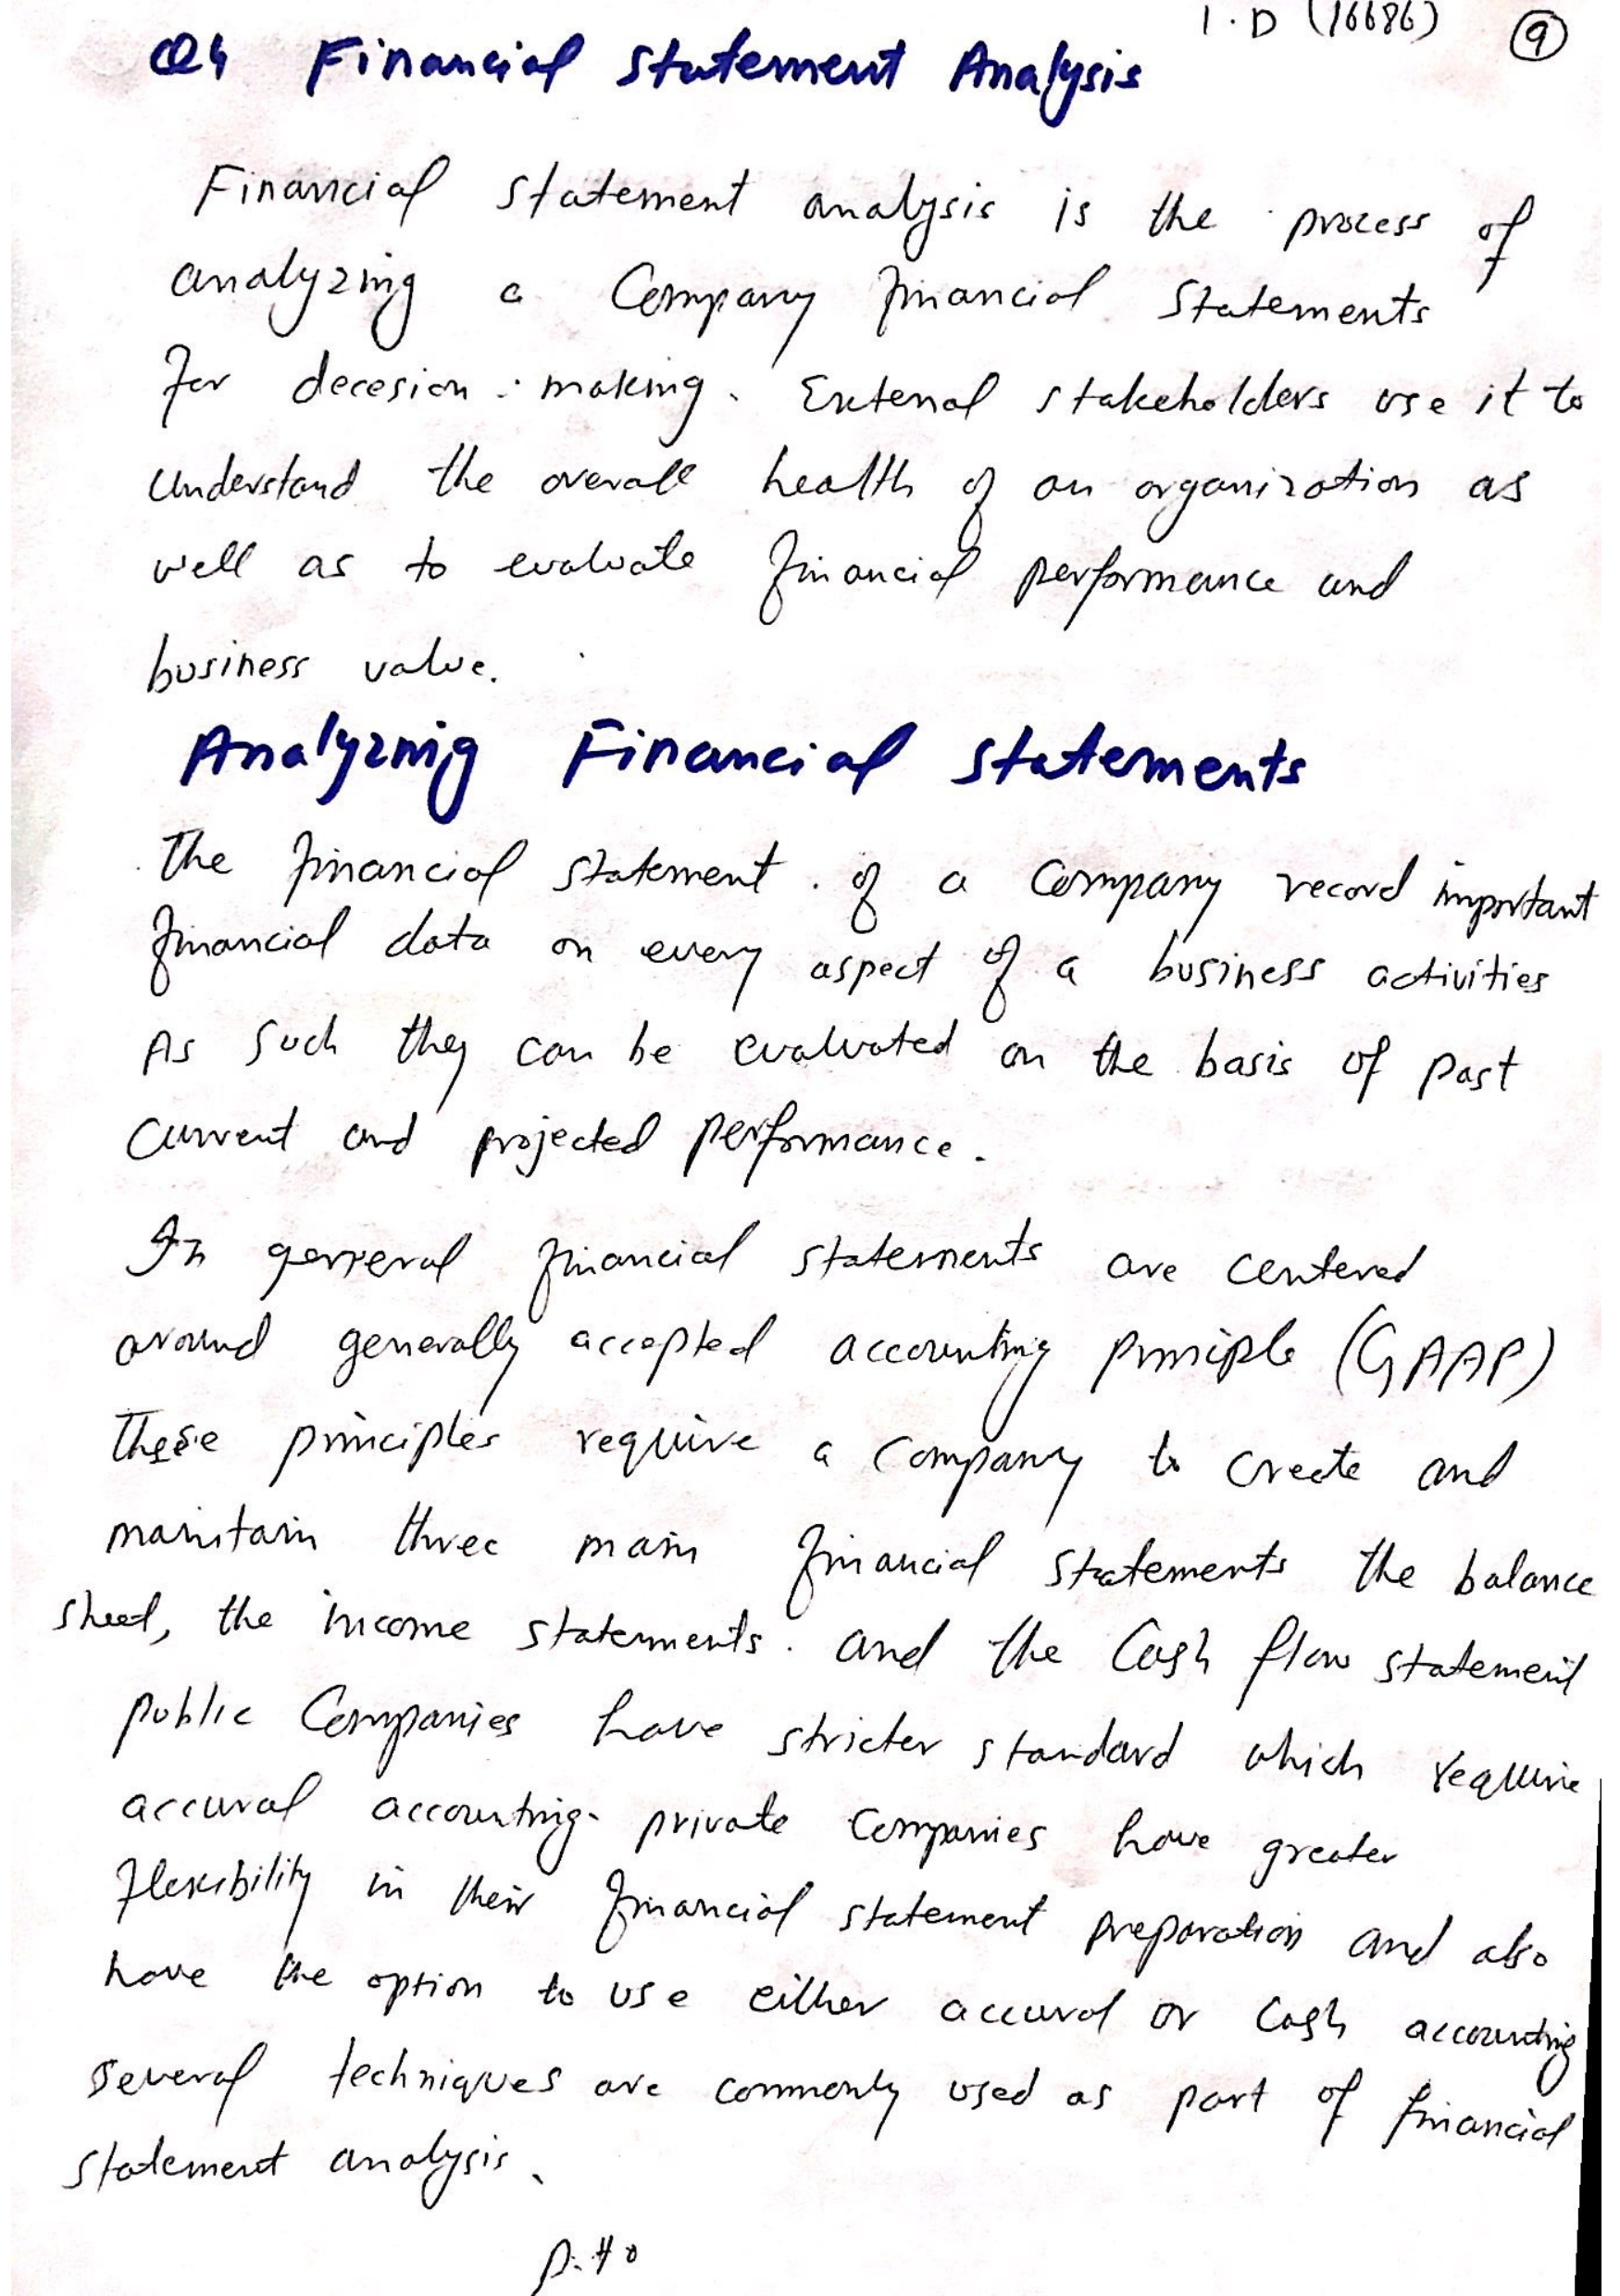 I.D (16686) 9
Q4 Financial Statement Analysis
Financial statement analysis is the process of
analyzing a Company financial Statements
for decesion making. External stakeholders use it to
understand the overall health of an organization as
well as to evaluate financial performance and
business value.
Analyzing Financial Statements
The financial statement of a Company record important
financial data on every aspect of a business activities
As such they can be evaluated on the basis of past
current and projected performance.
In general financial statements are centered
around generally accepted accounting principle (GAAP)
These principles require a company to create and
maintain three main financial statements the balance
sheet, the income statements. and the Cash flow statement
public Companies have stricter standard which require
accural accounting. private Companies have greater
flexibility in their financial statement preparation and also
have the option to use either accural or Cash accounting
several techniques are commonly used as part of financial
statement analysis.